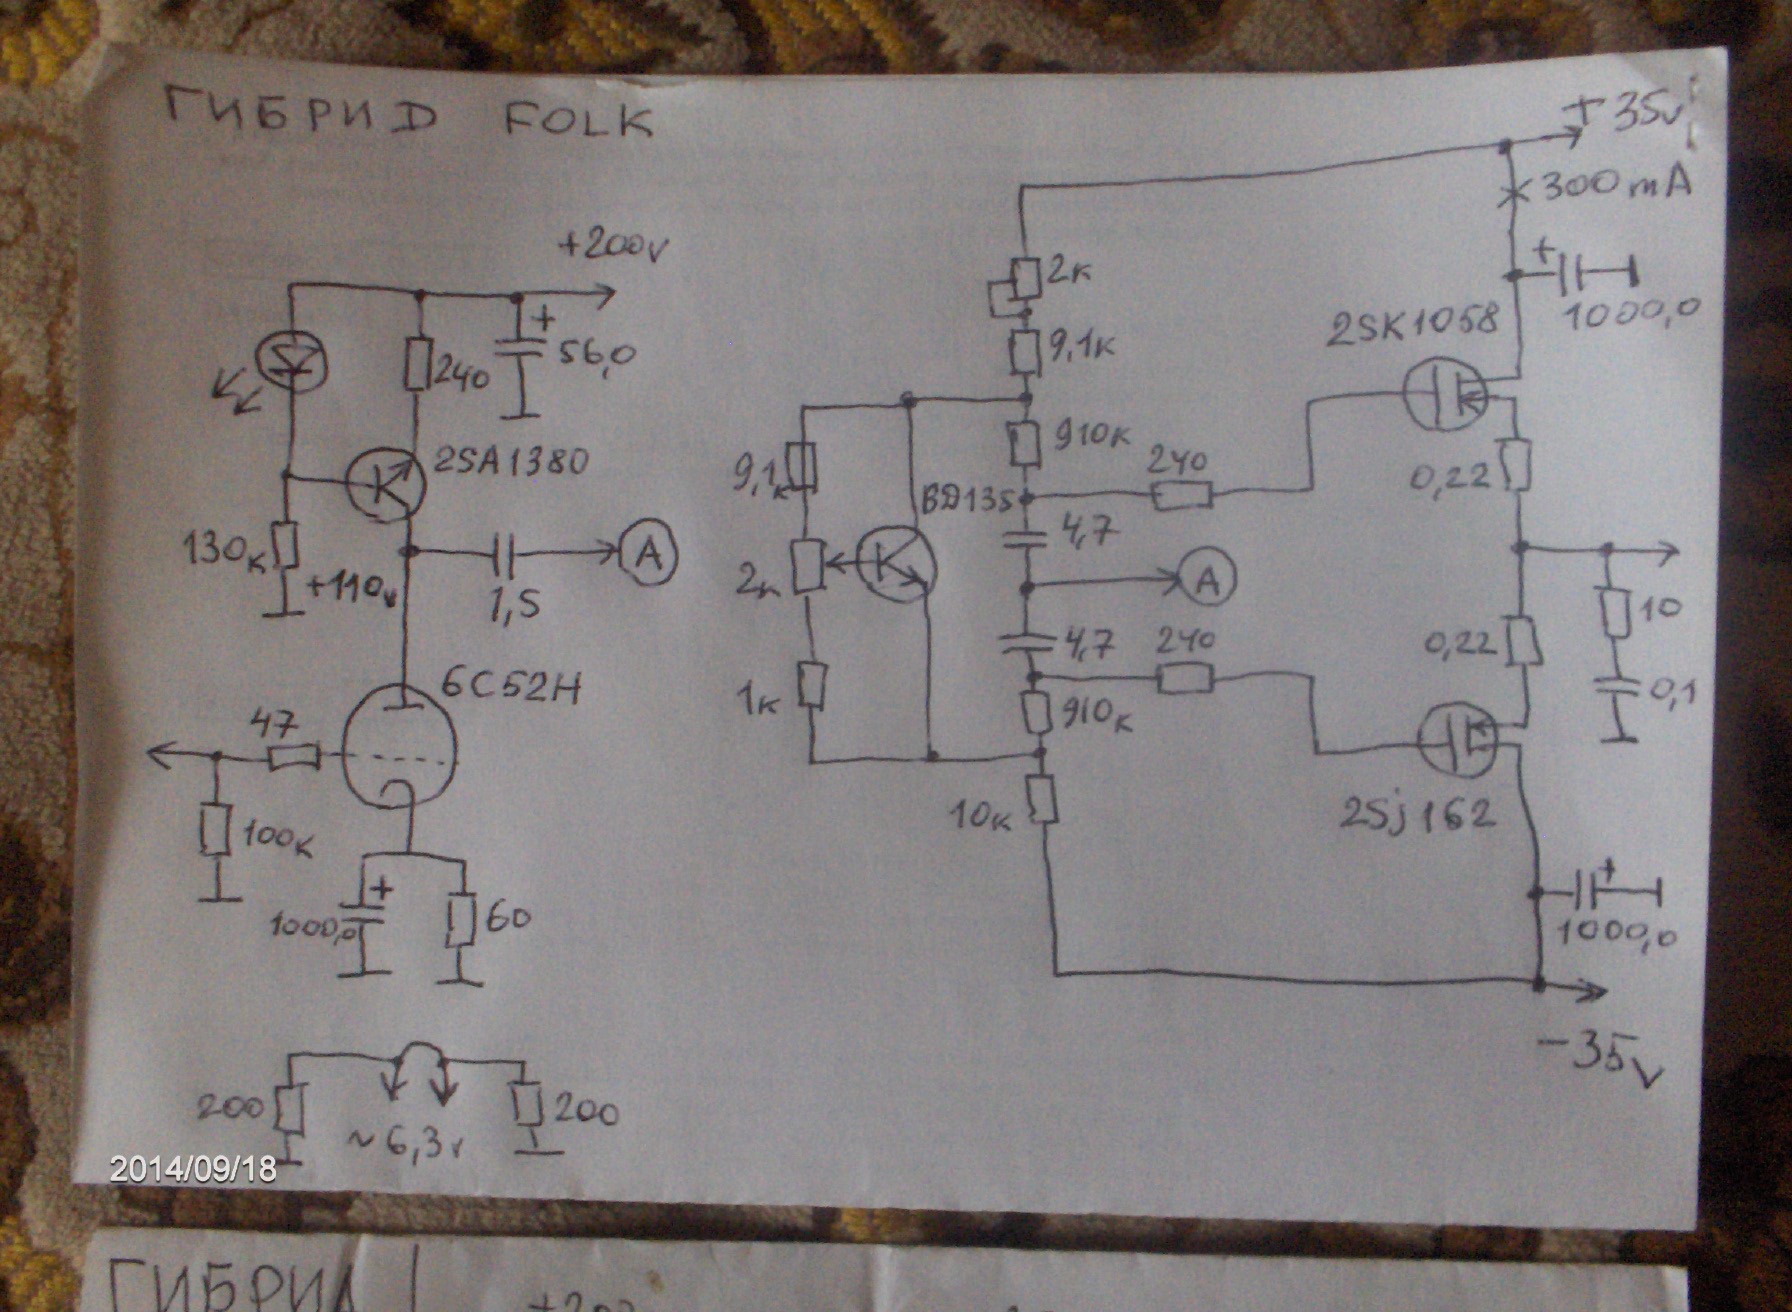 ГИБРИД FOLK
+35v
300mA
+200v
+
56,0
240
2SA1380
130к
+110v
1,5
A
6С52Н
47
100к
+
1000,0
60
200
~6,3v
200
2к
9,1к
910к
240
9,1к
BD135
4,7
2к
A
4,7
240
1к
910к
10к
+
1000,0
2SK1058
0,22
0,22
10
0,1
2Sj162
+
1000,0
-35v
2014/09/18
ГИБРИД